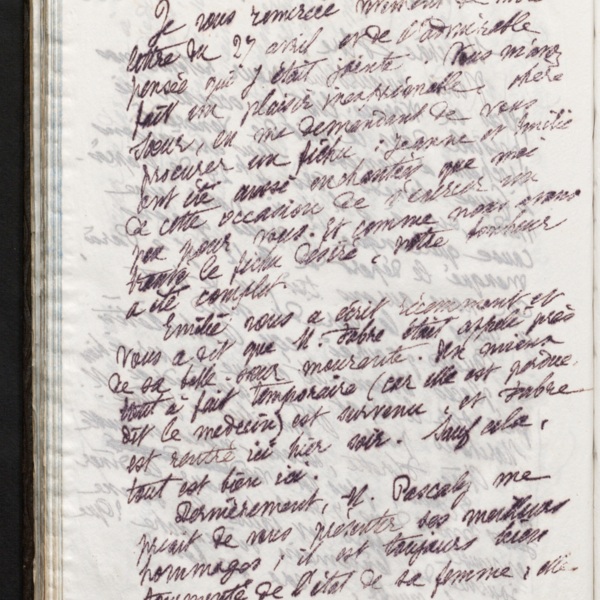 Je vous remercie vivement de
lettre du 27 avril et de l'admirable
pensée qui y était jointe. Vous m'avez
fait un plaisir inexprimable, chère
Sœur, en me demandant de vous
procurer un fichu : Jeanne et Emilie
ont été aussi enchantées que moi
de cette occasion de s'exercer un
peu pour vous. Et comme nous avons
trouvé le fichu désiré, notre bonheur
a été complet.
Emilie vous a écrit récemment et
vous a dit que M. Fabre était appelé près
de sa belle-sœur mourante. Un mieux
tout à fait temporaire (car elle est perdue,
dit le médecin) est survenu et Fabre
est rentré ici hier soir. Sauf cela,
tout est bien ici.
Dernièrement, M. Pascaly me
priait de vous présenter ses meilleurs
hommages ; il est toujours bien
tourmenté de l'état de sa femme ;